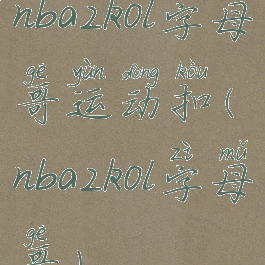 nba2kol字母
gē yùn dòng kòu
哥运动扣(
zì mǔ
nba2kol字母
gē
哥)